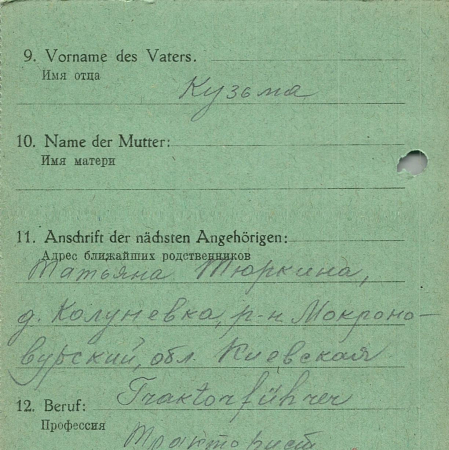 9. Vorname des Vaters.
Имя отца
Кузьма
10. Name der Mutter:
Имя матери
11. Anschrift der nächsten Angehörigen:
Адрес ближайших родственников
Татьяна Тюркина,
д. Калуневка, р-н Мокроно-
вурский, обл. Киевская
Traktorführer
12. Beruf:
Профессия
Тракторист